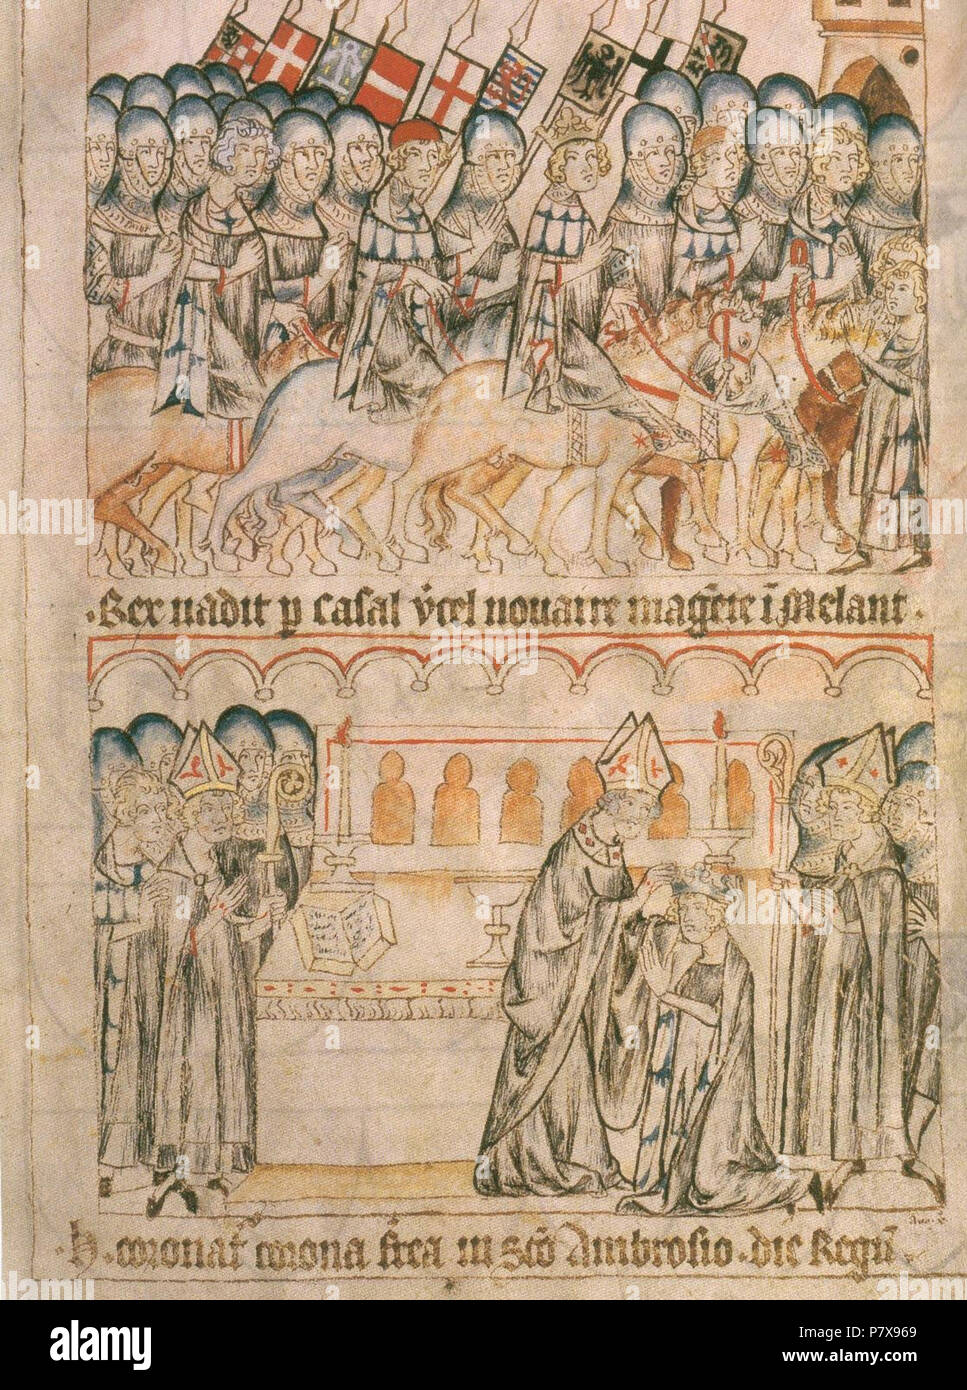 ·Rex uadit p casal v̄cel nouaire mag̃ete ī Melant·
·h·coronat̃ corona fr̃ea in sc̃o Ambrosio·die Regũ
a alamy stock photo
alamy
Image ID: P7X969
www.alamy.com